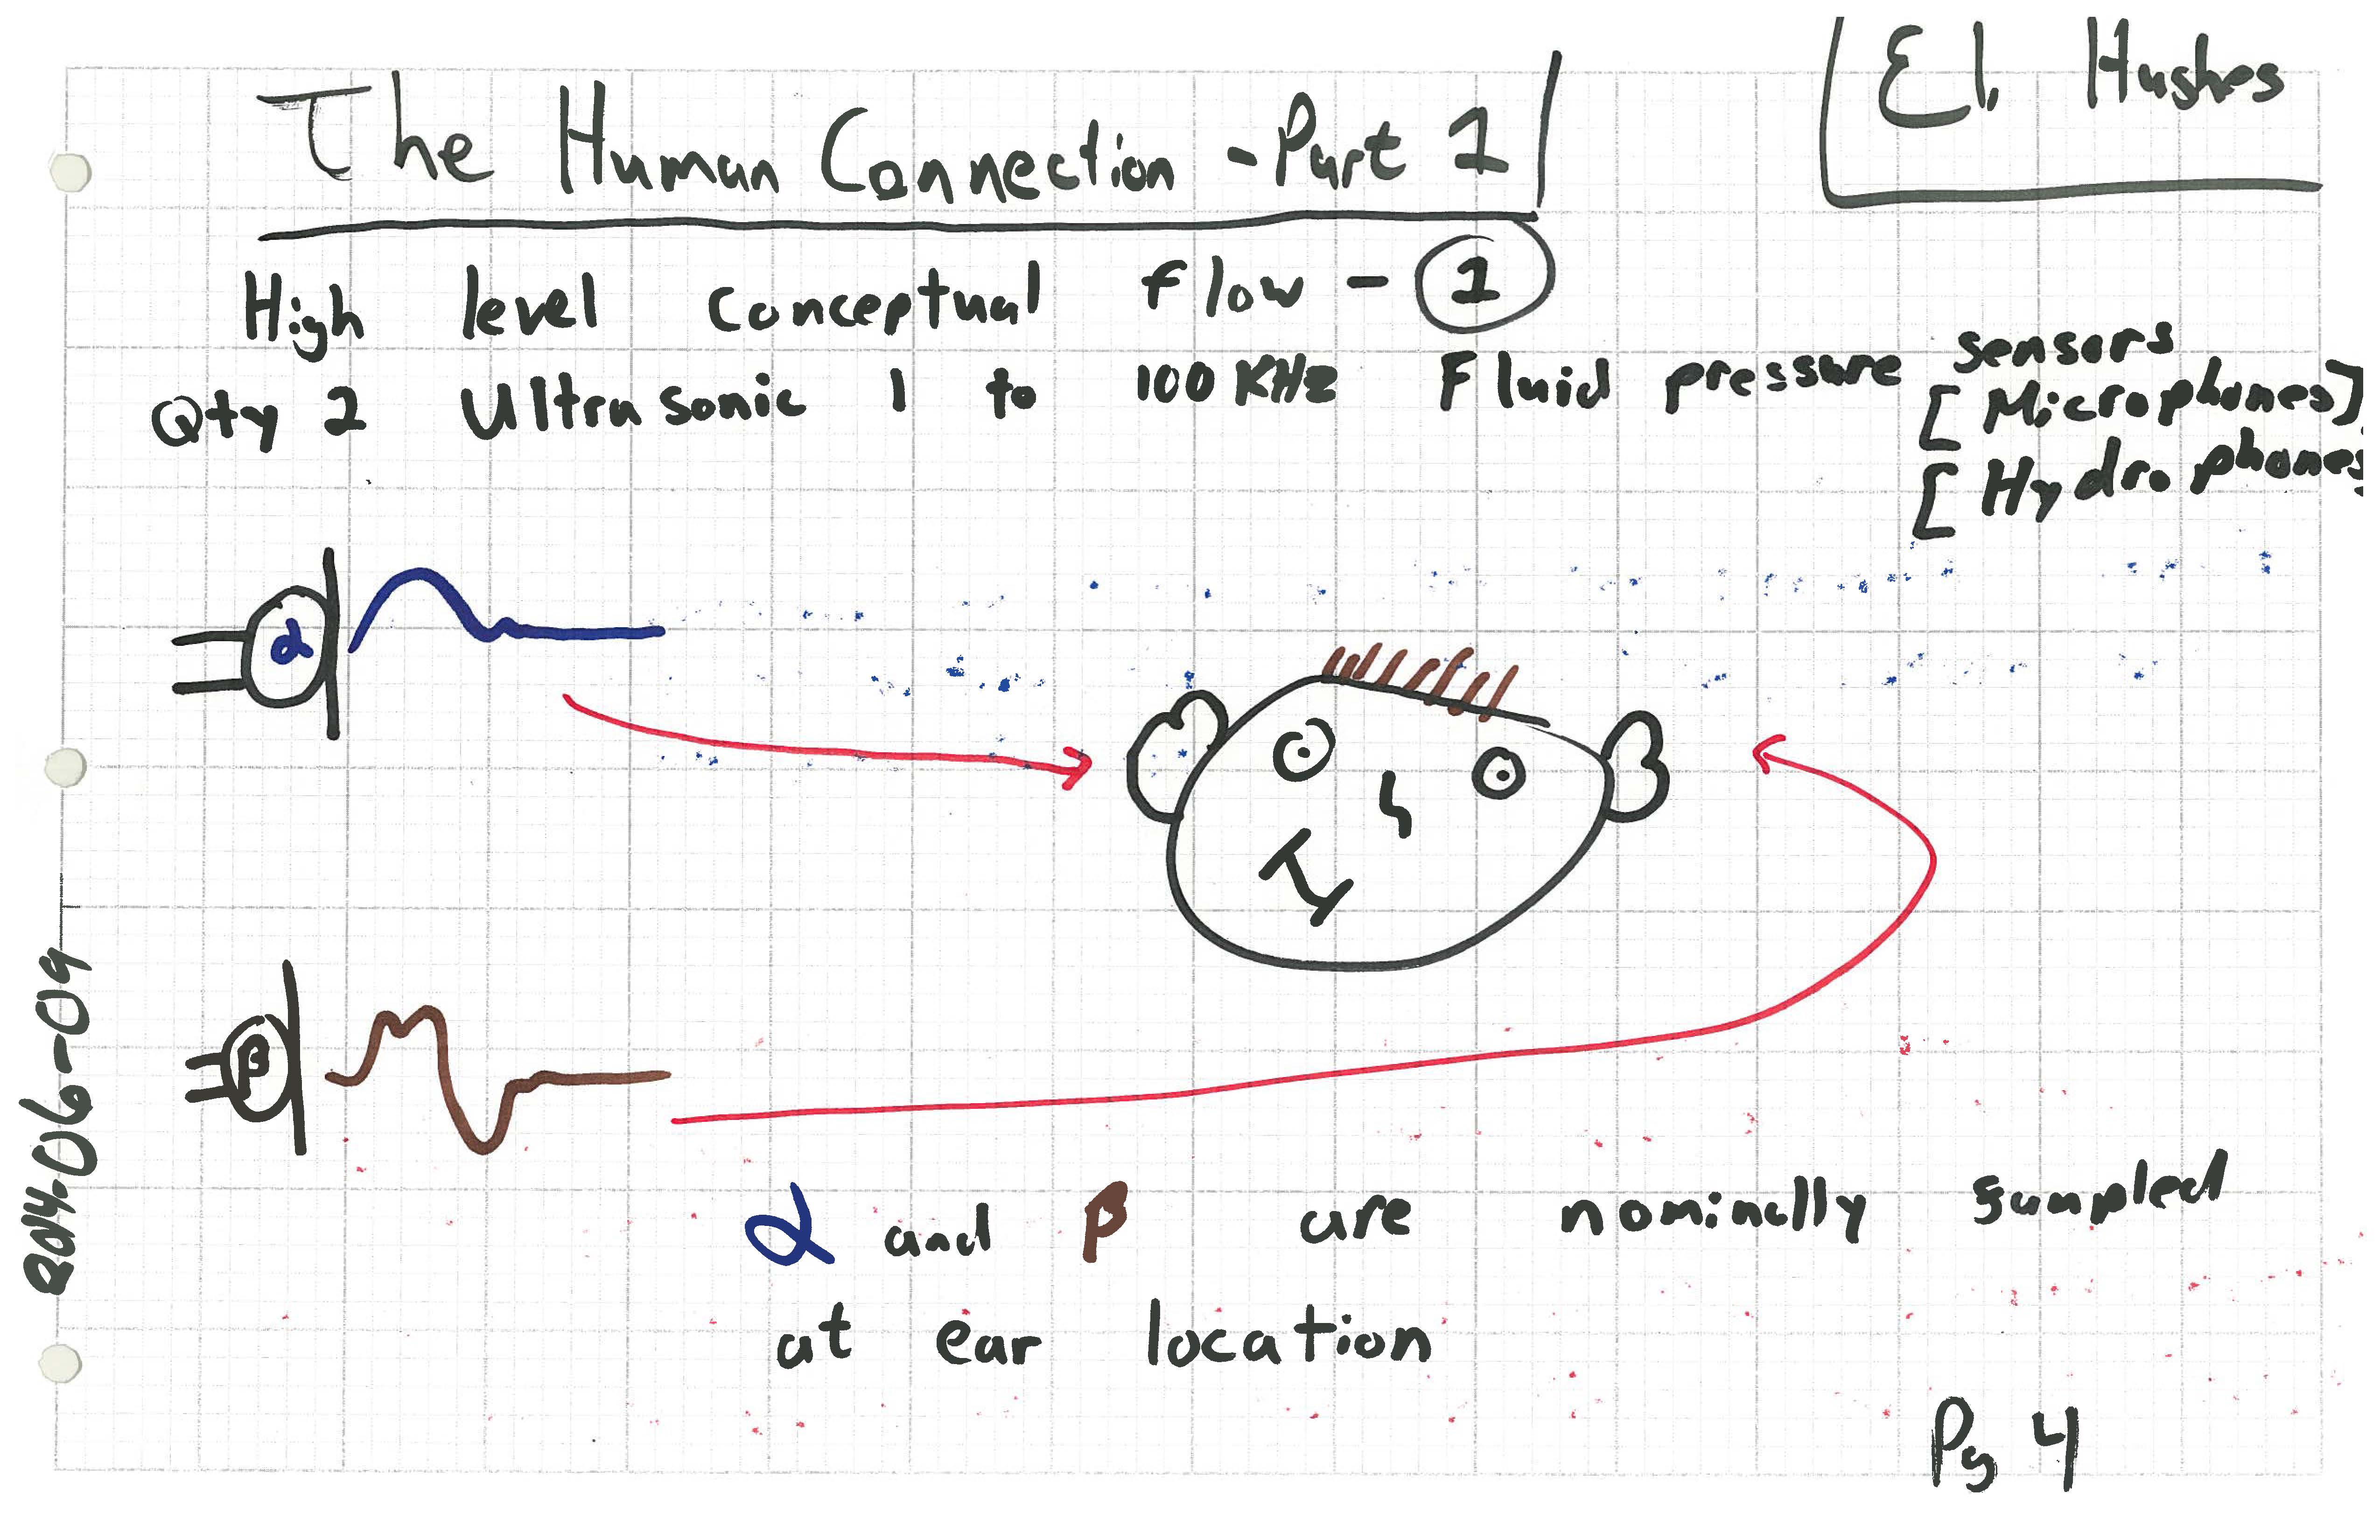 The Human Connection - Part 1
El. Hughes
High level conceptual flow - 1
Qty 2 Ultrasonic 1 to 100 KHz Fluid pressure sensors
[Microphones]
[Hydrophones
α
β
2014-06-09
α and β are nominally sampled
at ear location
Pg 4